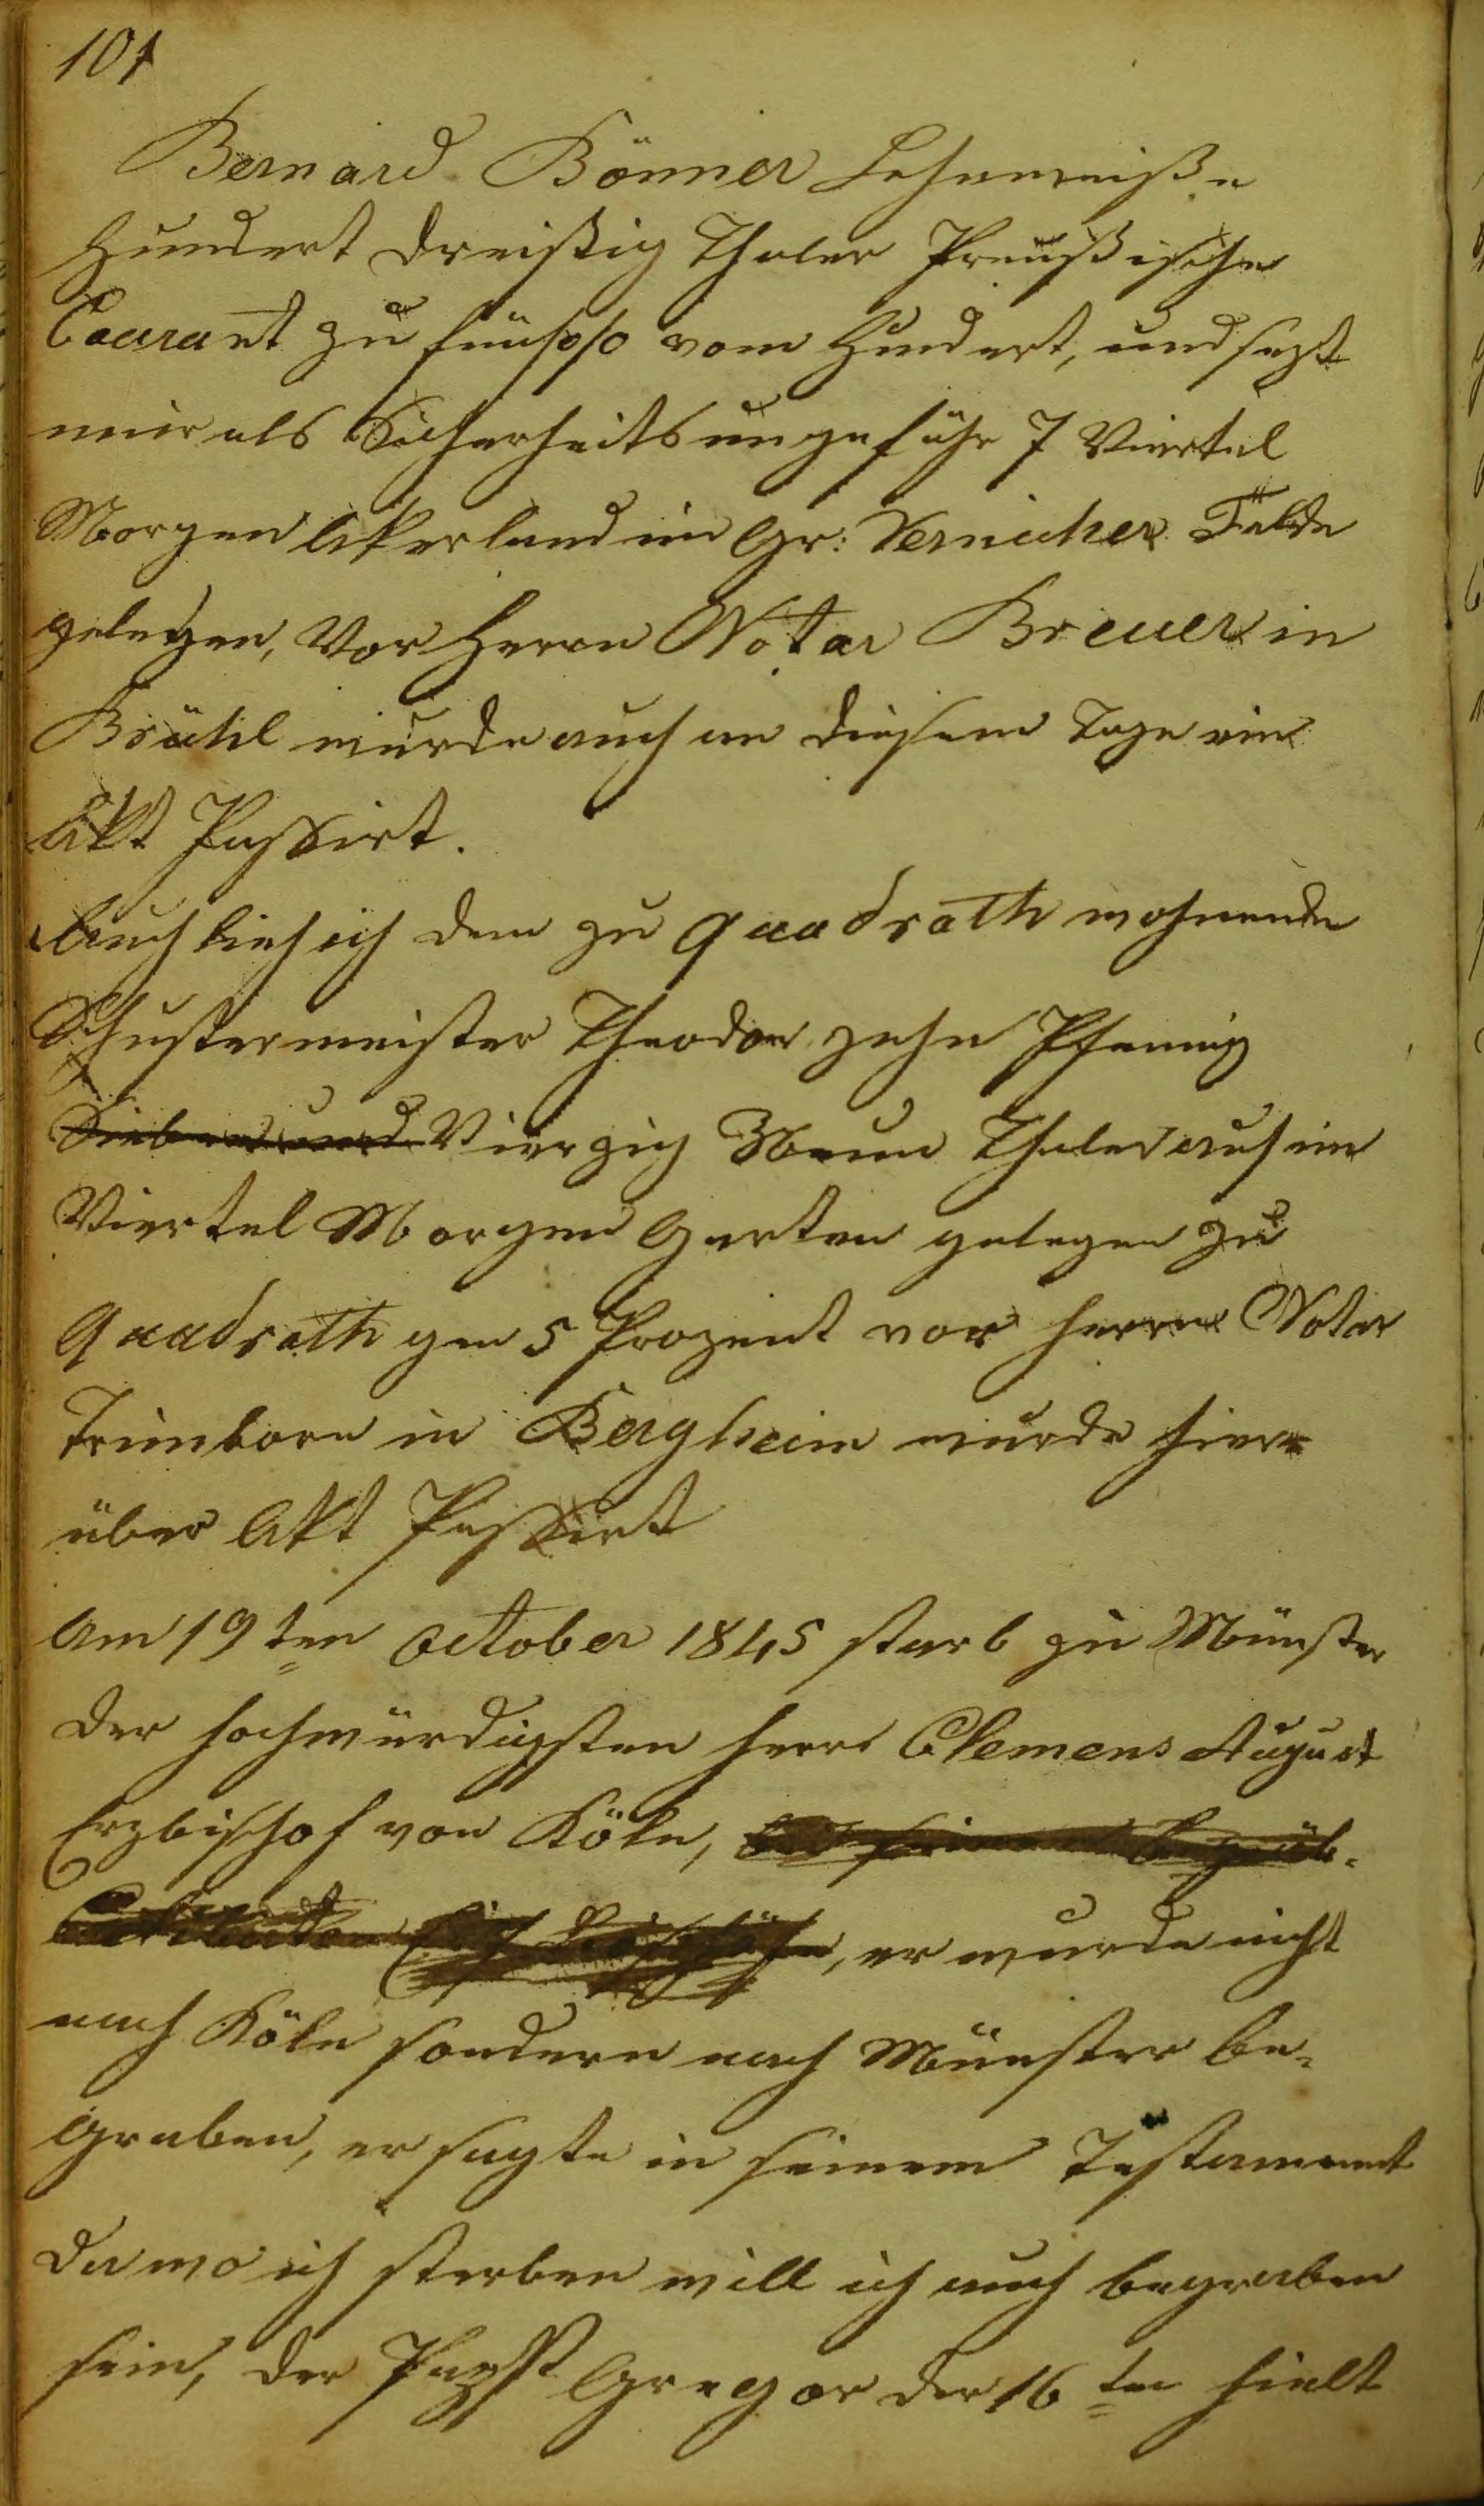 101
Bernard Bönner Lehnweiße
Hundert dreißig Thaler Preußische
Courant zu fünf p/o vom Hundert, und sezt
mir als Sicherheits ungefähr 7 Viertel
Morgen Akerland im Gr: Vernicher Felde
gelegen, Vor Herrn Notar Breuer in
Brühl wurde auch an diesem Tage ein
Akt Passirt.
Auch lieh ich dem zu Quadrath wohnende
Schustermeister Theodor zehn Pfennig
Sieben und Vierzig Neun Thaler auf ein
Viertel Morgen Garten gelegen zu
Quadrath gen 5 Prozent vor Herrn Notar
Trimborn in Bergheim wurde hier=
über Akt Passirt
Am 19ten October 1845 starb zu Münster
der hochwürdigsten Herr Clemens August
Erzbischof von Köln,
, er wurde nicht
nach Köln sondern nach Münster be=
graben, er sagte in seinem Testament
da wo ich sterben will ich auch begraben
sein, der Papst Gregor der 16te hielt